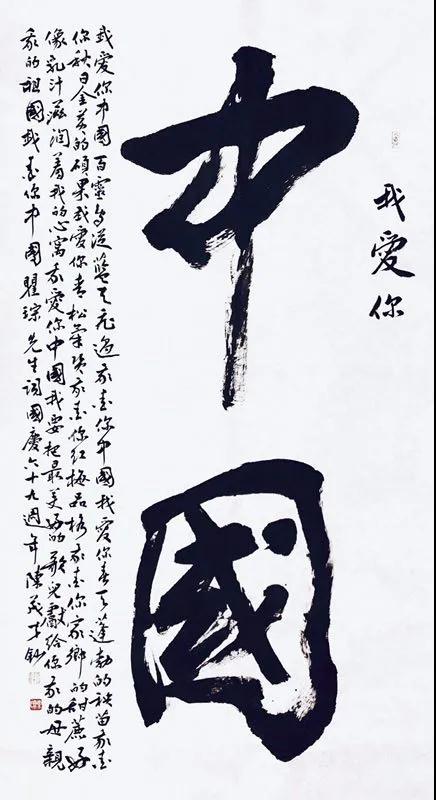 我愛你
中國
我愛你中國百靈鳥從藍天飛過我愛你中國我愛你春天蓬勃的秧苗我愛
你秋日金黄的碩果我愛你青松氣質我愛你红梅品格我愛你家鄉的甜蔗好
像乳汁滋润着我的心窝我愛你中國我要把最美好的歌兒獻给你我的母親
我的祖國我愛你中國瞿琮先生词國慶六十九週年陳茂才鈔